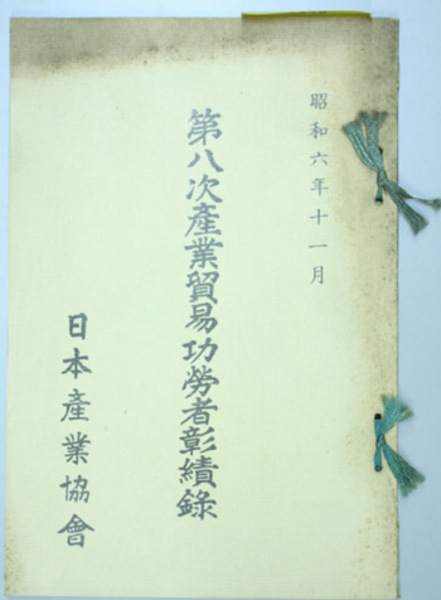 昭和六年十一月
第八次產業貿易功勞者彰績錄
日本產業協會